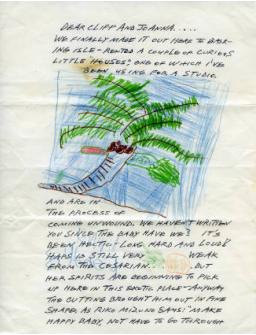 DEAR CLIFF AND JOANNA.....
WE FINALLY MADE IT OUT HERE TO
ING ISLE - RENTED A COUPLE OF CURIOUS
LITTLE HOUSES, ONE OF WHICH I'VE
BEEN USING FOR A STUDIO.
AND ARE IN
THE PROCESS OF
COMING UNWOUND. WE HAVEN'T WRITTEN
YOU SINCE THE BABY HAVE WE? IT'S
BEEN HECTIC - LONG HARD AND LOUD!
IS STILL VERY WEAK
FROM THE CESARIAN..... BUT
HER SPIRITS ARE BEGINNING TO PICK
UP HERE IN THIS EXOTIC PLACE - ANYWAY
THE CUTTING BROUGHT HIM OUT IN FINE
SHAPE, AS RIKO MIZUNO SAYS: MAKE
HAPPY BABY NOT HAVE TO GO THROUGH